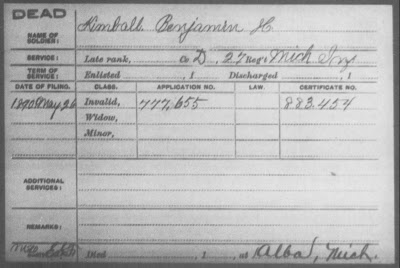 DEAD
NAME OF SOLDIER: Kimball Benjamin H.
SERVICE: Late rank, Co. D, 27 Reg't Mich Inf
TERM OF SERVICE: Enlisted , 1 Discharged , 1
DATE OF FILING. CLASS. APPLICATION NO. LAW. CERTIFICATE NO.
1890 May 26 Invalid, 777,655 883.454
Widow,
Minor,
ADDITIONAL SERVICES:
REMARKS:
Died , 1 , at Alba, Mich.